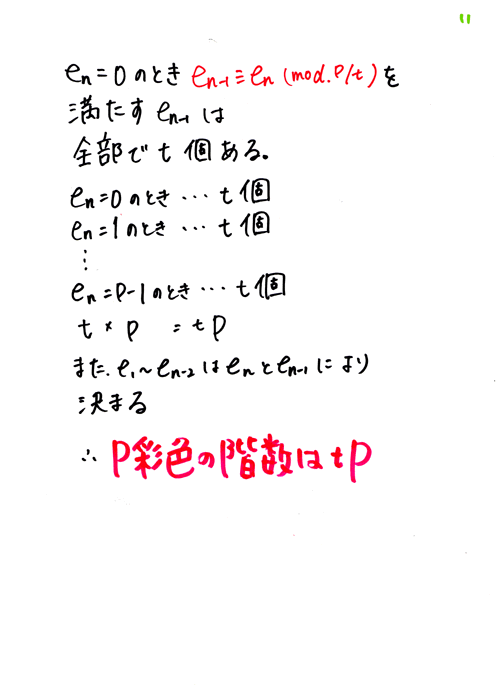 11
eₙ=0のとき eₙ₋₁≡eₙ (mod.P/t)を
満たす eₙ₋₁は
全部で t 個ある。
eₙ=0のとき … t個
eₙ=1のとき … t個
⋮
eₙ=P-1のとき … t個
t × P = tP
また、e₁~eₙ₋₂はeₙとeₙ₋₁により
決まる
∴ P彩色の階数はtP